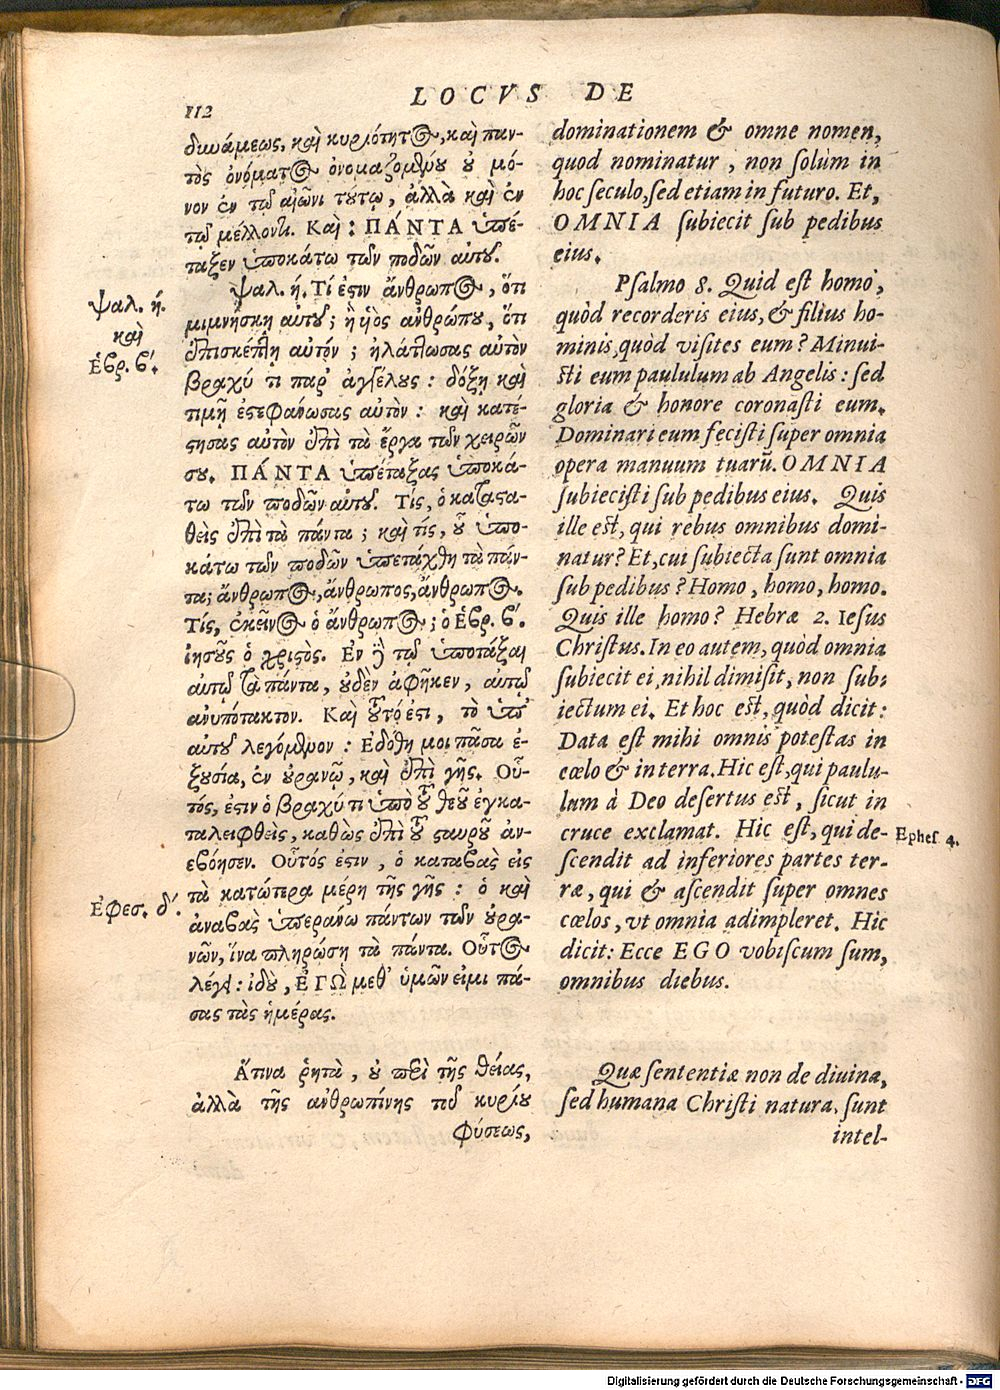 LOCVS DE
112
δυνάμεως, καὶ κυριότητος, καὶ παν-
τὸς ὀνόματος ὀνομαζομένου οὐ μό-
νον ἐν τῷ αἰῶνι τούτῳ, ἀλλὰ καὶ ἐν
τῷ μέλλοντι. Καὶ: ΠΆΝΤΑ ὑπέ-
ταξεν ὑποκάτω τῶν ποδῶν αὐτοῦ.
ψαλ. ή. Τί ἐστιν ἄνθρωπος, ὅτι
μιμνήσκῃ αὐτοῦ; ἢ ἡὸς ἀνθρώπου, ὅτι
ἐπισκέπτῃ αὐτόν; ἠλάττωσας αὐτὸν
βραχύ τι παρ' ἀγγέλους: δόξῃ καὶ
τιμῇ ἐστεφάνωσας αὐτὸν: καὶ κατέ-
στησας αὐτὸν ἐπὶ τὰ ἔργα τῶν χειρῶν
σου. ΠΆΝΤΑ ὑπέταξας ὑποκά-
τω τῶν ποδῶν αὐτοῦ. Τίς, ὁ κατασα-
θεὶς ἐπὶ τὰ πάντα; καὶ τίς, οὗ ὑπο-
κάτω τῶν ποδῶν ὑπετάχθη τὰ πάν-
τα; ἄνθρωπος, ἄνθρωπος, ἄνθρωπος.
Τίς, ἐκεῖνος ὁ ἄνθρωπος; ὁ Ἑβρ. β'.
ἰησοῦς ὁ χριστός. Ἐν ᾧ τῷ ὑποτάξαι
αὐτῷ τὰ πάντα, οὐδὲν ἀφῆκεν, αὐτῷ
ἀνυπότακτον. Καὶ τοῦτό ἐστι, τὸ ὑπ'
αὐτοῦ λεγόμενον: Ἐδόθη μοι πᾶσα ἐ-
ξουσία, ἐν οὐρανῷ, καὶ ἐπὶ γῆς. Οὗ-
τός, ἐστιν ὁ βραχύ τι ὑπὸ τοῦ θεοῦ ἐγκα-
ταλειφθεὶς, καθὼς ἐπὶ τοῦ σταυροῦ ἀν-
εβόησεν. Οὗτός ἐστιν, ὁ καταβὰς εἰς
τὰ κατώτερα μέρη τῆς γῆς: ὁ καὶ
ἀναβὰς ὑπεράνω πάντων τῶν οὐρα-
νῶν, ἵνα πληρώσῃ τὰ πάντα. Οὗτος
λέγει: ἰδοὺ, ἘΓῺ μεθ' ὑμῶν εἰμι πά-
σας τὰς ἡμέρας.
Ἅτινα ῥητὰ, οὐ περὶ τῆς θείας,
ἀλλὰ τῆς ἀνθρωπίνης τοῦ κυρίου
φύσεως,
ψαλ. ή.
καὶ
Ἑβρ. β'.
Ἐφεσ. δ'.
dominationem & omne nomen,
quod nominatur, non solùm in
hoc seculo, sed etiam in futuro. Et,
OMNIA subiecit sub pedibus
eius.
Psalmo 8. Quid est homo,
quòd recorderis eius, & filius ho-
minis, quòd visites eum? Minui-
sti eum paululum ab Angelis: sed
gloria & honore coronasti eum.
Dominari eum fecisti super omnia
opera manuum tuarū. OMNIA
subiecisti sub pedibus eius. Quis
ille est, qui rebus omnibus domi-
natur? Et, cui subiecta sunt omnia
sub pedibus? Homo, homo, homo.
Quis ille homo? Hebræ 2. Iesus
Christus. In eo autem, quòd omnia
subiecit ei, nihil dimisit, non sub-
iectum ei. Et hoc est, quòd dicit:
Data est mihi omnis potestas in
cœlo & in terra. Hic est, qui paulu-
lum à Deo desertus est, sicut in
cruce exclamat. Hic est, qui de-
scendit ad inferiores partes ter-
ræ, qui & ascendit super omnes
cœlos, vt omnia adimpleret. Hic
dicit: Ecce EGO vobiscum sum,
omnibus diebus.
Quæ sententiæ non de diuina,
sed humana Christi natura, sunt
intel-
Ephes. 4.
Digitalisierung gefördert durch die Deutsche Forschungsgemeinschaft - DFG